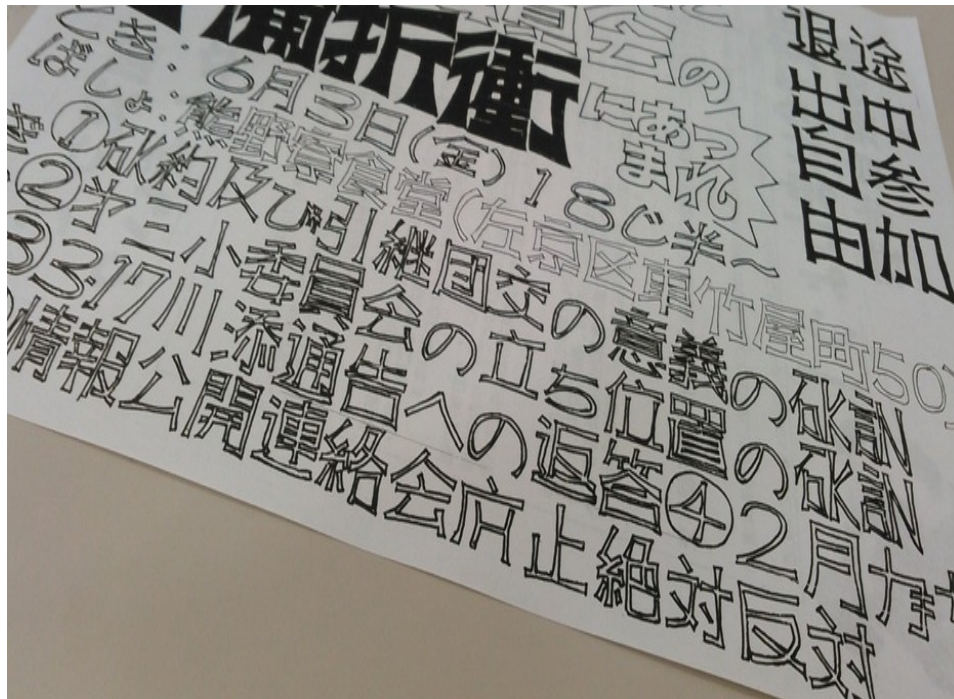 途中参加
退出自由
にあつまれ
備折衝
とき：6月3日(金)18じ半～
ばしょ：熊野寮食堂(左京区東竹屋町50
①確約及び引継団交の意義の確認
②才三小委員会の立ち位置の確認
③3.17川添通告への返答④2月付
の情報公開連絡会廃止絶対反対